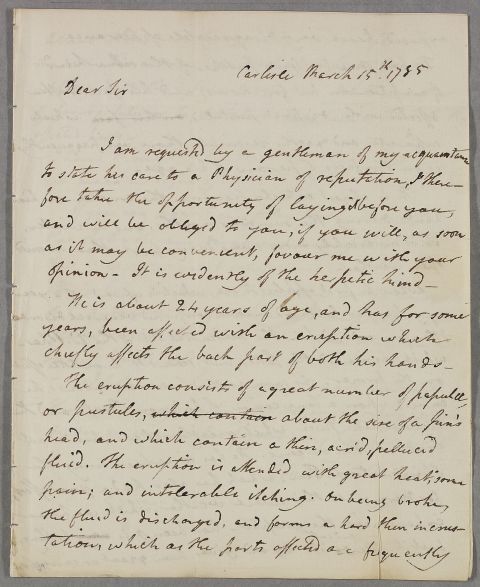 Carlisle March 15.th 1785
Dear Sir
I am requested by a gentleman of my acquaintance
to state his case to a Physician of reputation, I there-
fore take the opportunity of laying it before you,
and will be obliged to you, if you will, as soon
as it may be convenient, favour me with your
opinion - It is evidently of the herpetic kind -
He is about 24 years of age, and has for some
years, been affected with an eruption which
chiefly affects the back part of both his hands -
The eruption consists of a great number of papulæ,
or pustules, which contain about the size of a pin's
head, and which contain a thin, acrid, pellucid
fluid. The eruption is attended with great heat, some
pain; and intolerable itching. On being broke,
the fluid is discharged, and forms a hard thin incrus-
tation, which as the parts affected are frequently